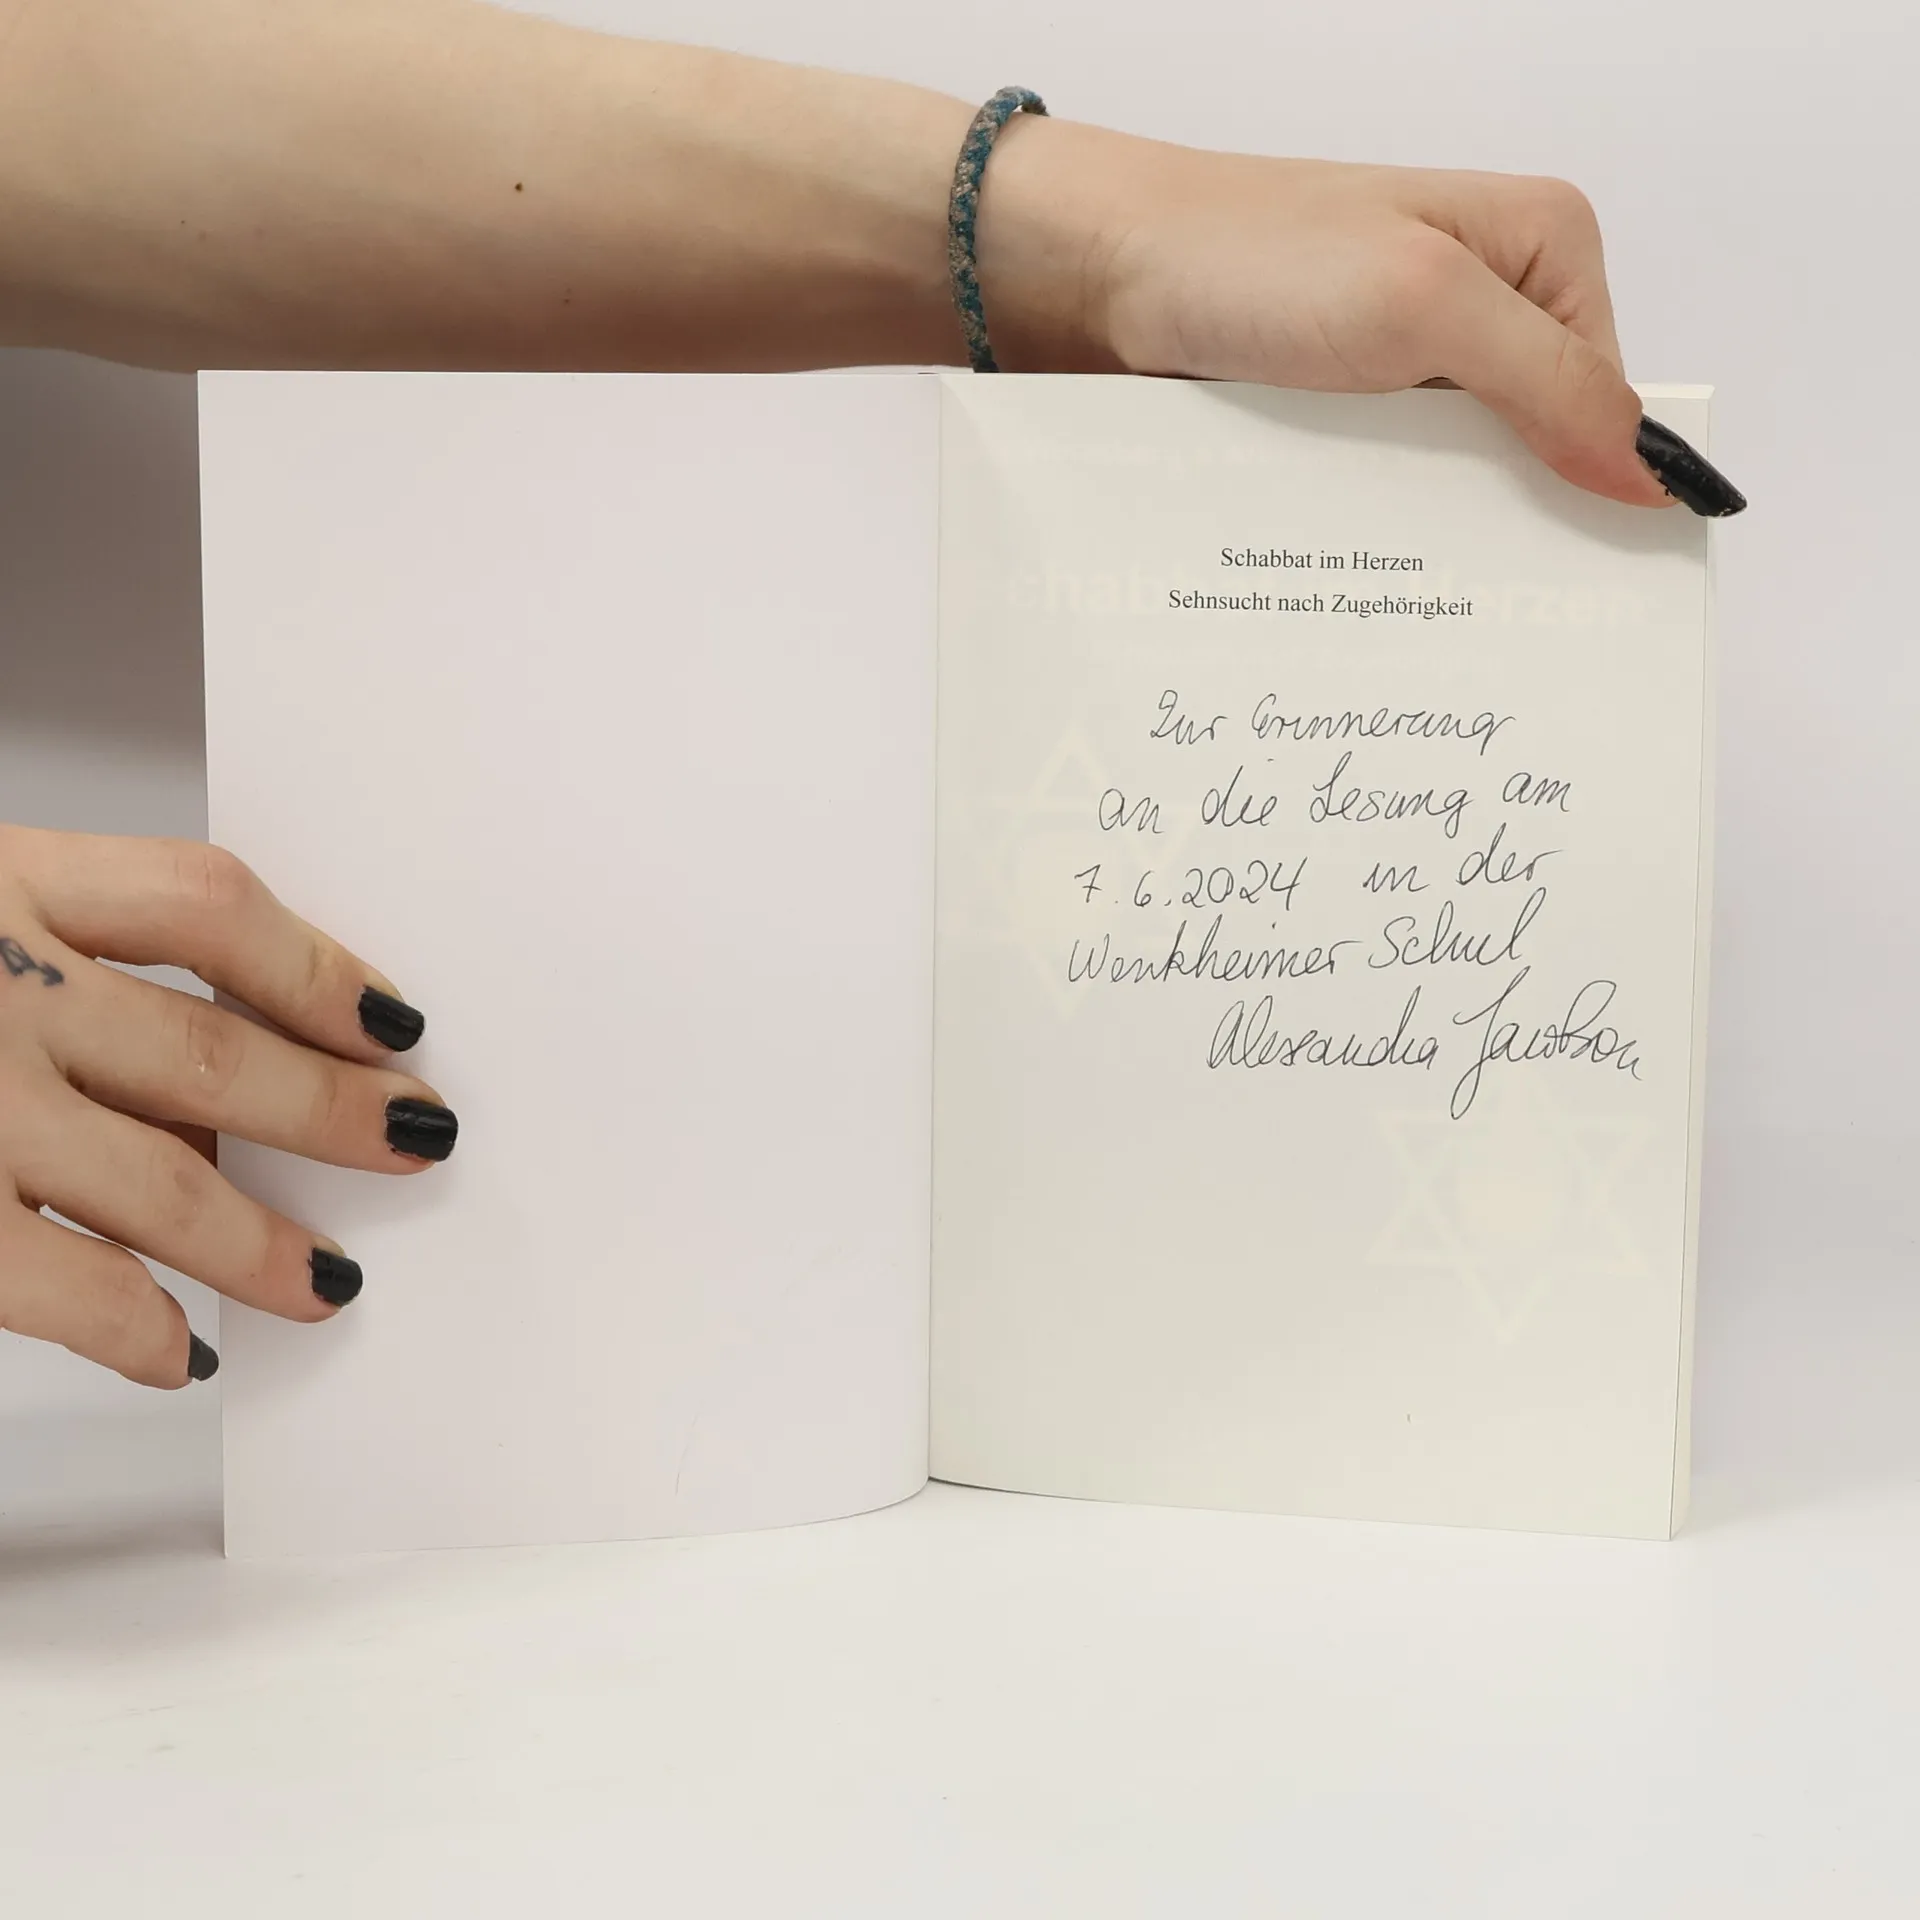 Schabbat im Herzen
Sehnsucht nach Zugehörigkeit
Zur Erinnerung
an die Lesung am
7.6.2024 in der
Wenkheimer Schul
Alexandra Jacobson